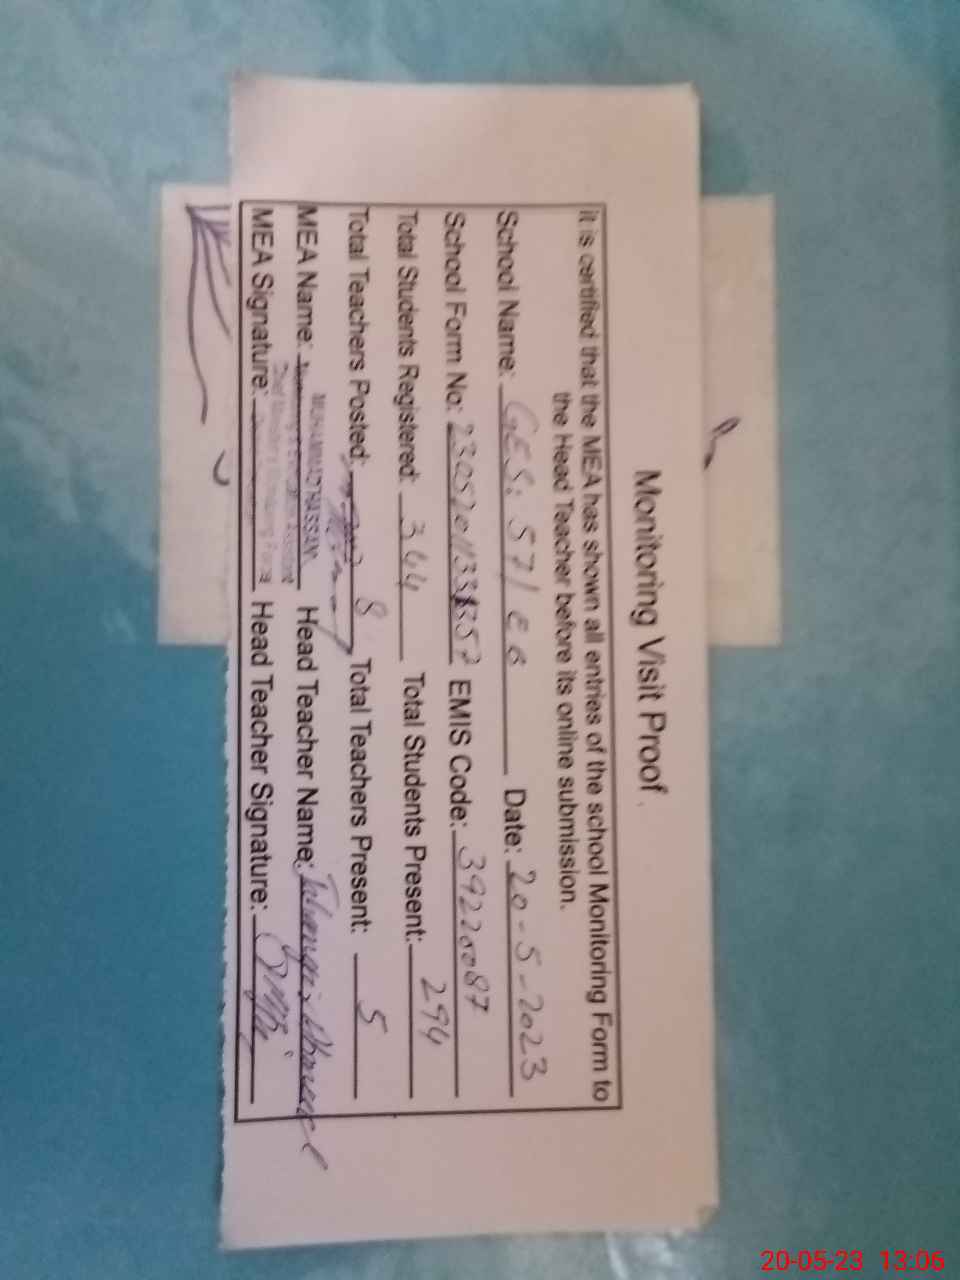 Monitoring Visit Proof
it is certified that the MEA has shown all entries of the school Monitoring Form to
the Head Teacher before its online submission.
School Name: GES: 57/EB Date: 20-5-2023
School Form No: EMIS Code: 39220087
Total Students Registered: 344 Total Students Present: 294
Total Teachers Posted: 8 Total Teachers Present: 5
MEA Name: MUHAMMAD HASSAN Head Teacher Name:
MEA Signature: Head Teacher Signature:
20-05-23 13:06